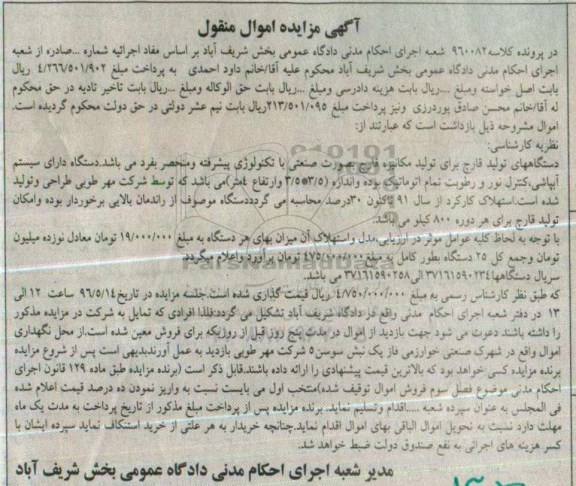 آگهی مزایده اموال منقول
در پرونده کلاسه ۹۶۰۰۸۲ شعبه اجرای احکام مدنی دادگاه عمومی بخش شریف آباد بر اساس مفاد اجرائیه شماره ...صادره از شعبه
اجرای احکام مدنی دادگاه عمومی بخش شریف آباد محکوم علیه آقا/خانم داود احمدی به پرداخت مبلغ ۴/۲۶۶/۵۰۱/۹۰۲ ریال
بابت اصل خواسته ومبلغ ...ریال بابت هزینه دادرسی ومبلغ ...ریال بابت حق الوکاله ومبلغ ...ریال بابت تاخیر تادیه در حق محکوم
له آقا/خانم محسن صادق پوردرزی ونیز پرداخت مبلغ ۲۱۳/۵۰۱/۰۹۵ریال بابت نیم عشر دولتی در حق دولت محکوم گردیده است.
اموال مشروحه ذیل بازداشت است که عبارتند از:
نظریه کارشناسی:
دستگاههای تولید قارچ برای تولید مکانیزه قارچ بصورت صنعتی با تکنولوژی پیشرفته ومنحصر بفرد می باشد.دستگاه دارای سیستم
آبپاشی،کنترل نور و رطوبت تمام اتوماتیک بوده واندازه (۳/۵*۳/۵ وارتفاع ۴متر)می باشد که توسط شرکت مهر طوبی طراحی وتولید
شده است.استهلاک کارکرد از سال ۹۱ تاکنون ۳۰درصد محاسبه می گردددستگاه موصوف از راندمان بالایی برخوردار بوده وامکان
تولید قارچ برای هر دوره ۸۰۰ کیلو می باشد.
با توجه به لحاظ کلیه عوامل موثر در ارزیابی،مدل واستهلاک آن میزان بهای هر دستگاه به مبلغ ۱۹/۰۰۰/۰۰۰ تومان معادل نوزده میلیون
تومان وجمع کل ۲۵ دستگاه بطور کامل به مبلغ ۴۷۵/۰۰۰/۰۰۰ تومان برآورد واعلام میگردد.
سریال دستگاهها۳۷۱۶۱۵۹۰۲۳۴ الی۳۷۱۶۱۵۹۰۲۵۸ می باشد.
که طبق نظر کارشناس رسمی به مبلغ ۴/۷۵۰/۰۰۰/۰۰۰ ریال قیمت گذاری شده است.جلسه مزایده در تاریخ۹۶/۵/۱۴ ساعت ۱۲ الی
۱۳ در دفتر شعبه اجرای احکام مدنی واقع در دادگاه شریف آباد تشکیل می گردد.فلذا افرادی که تمایل به شرکت در مزایده مذکور
را داشته باشند دعوت می شود جهت بازدید از اموال در مدت پنج روز قبل از روزیکه برای فروش معین شده است.از محل نگهداری
اموال واقع در شهرک صنعتی خوارزمی فاز یک نبش سوسن ۵ شرکت مهر طوبی بازدید به عمل آورندبدیهی است پس از شروع مزایده
برنده مزایده کسی خواهد بود که بالاترین قیمت پیشنهادی را ارائه داده باشند.قابل ذکر است (برنده مزایده طبق ماده ۱۲۹ قانون اجرای
احکام مدنی موضوع فصل سوم فروش اموال توقیف شده)منتخب اول می بایست نسبت به واریز نمودن ده درصد قیمت اعلام شده
فی المجلس به عنوان سپرده شعبه .....اقدام وتسلیم نماید. برنده مزایده پس از پرداخت مبلغ مذکور از تاریخ پرداخت به مدت یک ماه
مهلت دارد نسبت به تحویل اموال الباقی بهای اموال اقدام نماید.چنانچه خریدار به هر علتی از خرید استنکاف نماید سپرده ایشان با
کسر هزینه های اجرائی به نفع صندوق دولت ضبط خواهد شد.
مدیر شعبه اجرای احکام مدنی دادگاه عمومی بخش شریف آباد